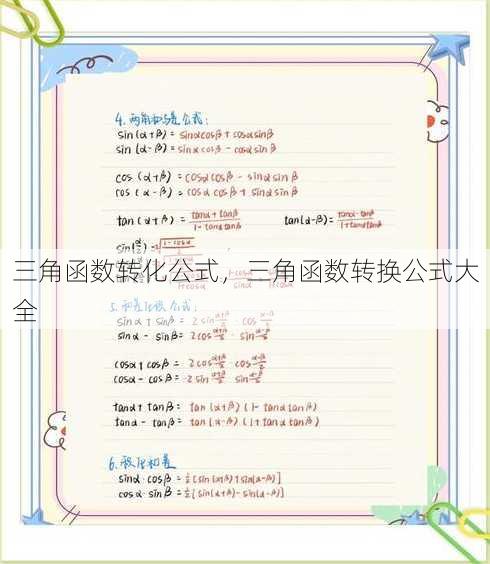 4. 两角和与差公式:
sin(α+β) = sinαcosβ + cosαsinβ
sin(α-β) = sinαcosβ - cosαsinβ
cos(α+β) = cosαcosβ - sinαsinβ
cos(α-β) = cosαcosβ + sinαsinβ
tan(α+β) = (tanα+tanβ)/(1-tanαtanβ) tan(α-β)= (tanα-tanβ)/(1+tanαtanβ)
三角函数转化公式，三角函数转换公式大
全
5. 和差化积公式:
sinα + sinβ = 2sin(α+β)/2 · cos(α-β)/2
sinα - sinβ= 2cos(α+β)/2 · sin(α-β)/2
cosα + cosβ = 2cos(α+β)/2 cos(α-β)/2
cosα - cosβ = -2sin(α+β)/2 sin(α-β)/2
tanα+ tanβ= tan(α+β)(1-tanαtanβ)
tanα - tanβ= tan(α-β)(1+tanαtanβ)
6. 积化和差
sinα·cosβ = ½[sin(α+β)+sin(α-β)]
cosα·sinβ = ½[sin(α+β)-sin(α-β)]